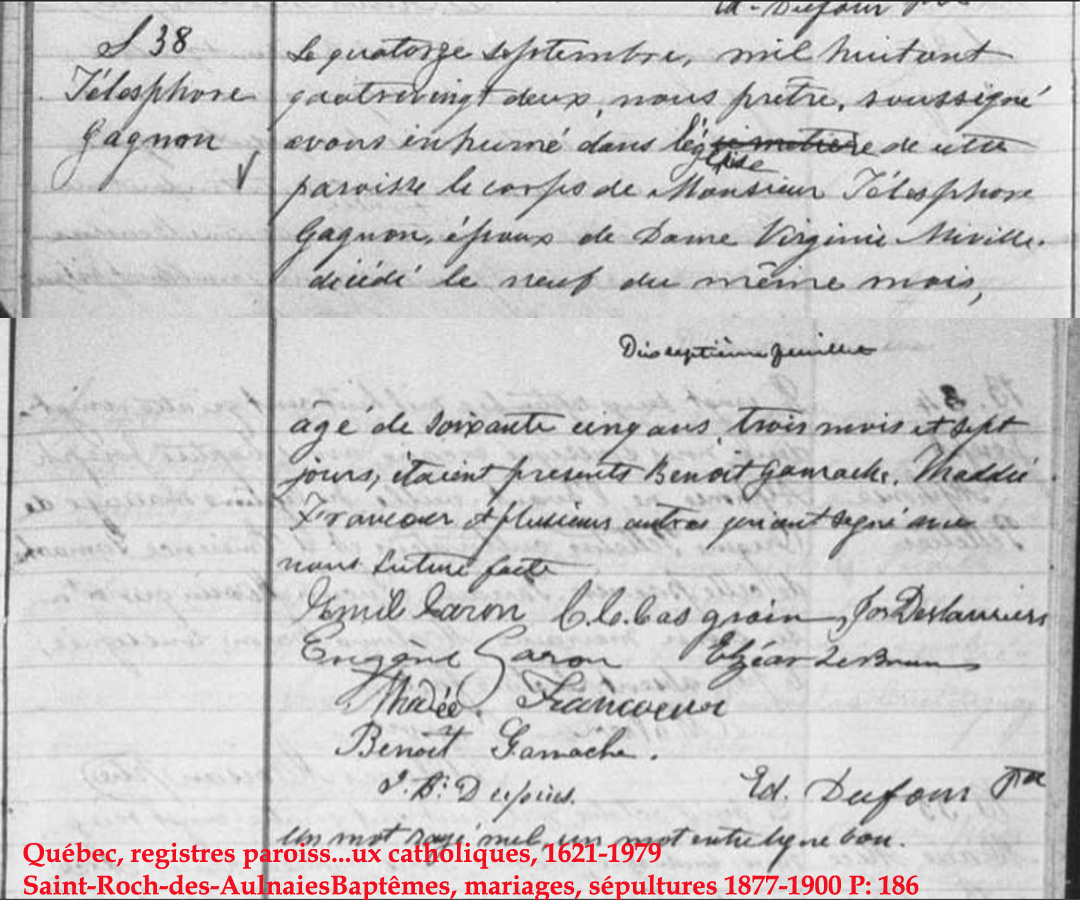 Ed. Dufour Ptre
S 38
Télesphore
Gagnon
Le quatorze septembre, mil huit cent
quatrevingt deux, nous prêtre, soussigné
avons inhumé dans l'église cimetière de cette
paroisse le corps de Monsieur Télesphore
Gagnon, époux de Dame Virginie Miville.
décédé le neuf du même mois,
Dixseptième feuillet
agé de soixante cinq ans, trois mois et sept
jours, étaient presents Benoit Gamache, Thaddé
Francoeur et plusieurs autres qui ont signé avec
nous lecture faite
Emil Caron C. C. Casgrain Jos Deslauriers
Eugène Caron Elzéar LeBrun
Thadée Francoeur
Benoit Gamache.
J. Bte Dupuis.
Ed. Dufour Ptre
Un mot rayé nul, un mot entreligne bon.
Québec, registres paroiss...ux catholiques, 1621-1979
Saint-Roch-des-AulnaiesBaptêmes, mariages, sépultures 1877-1900 P: 186